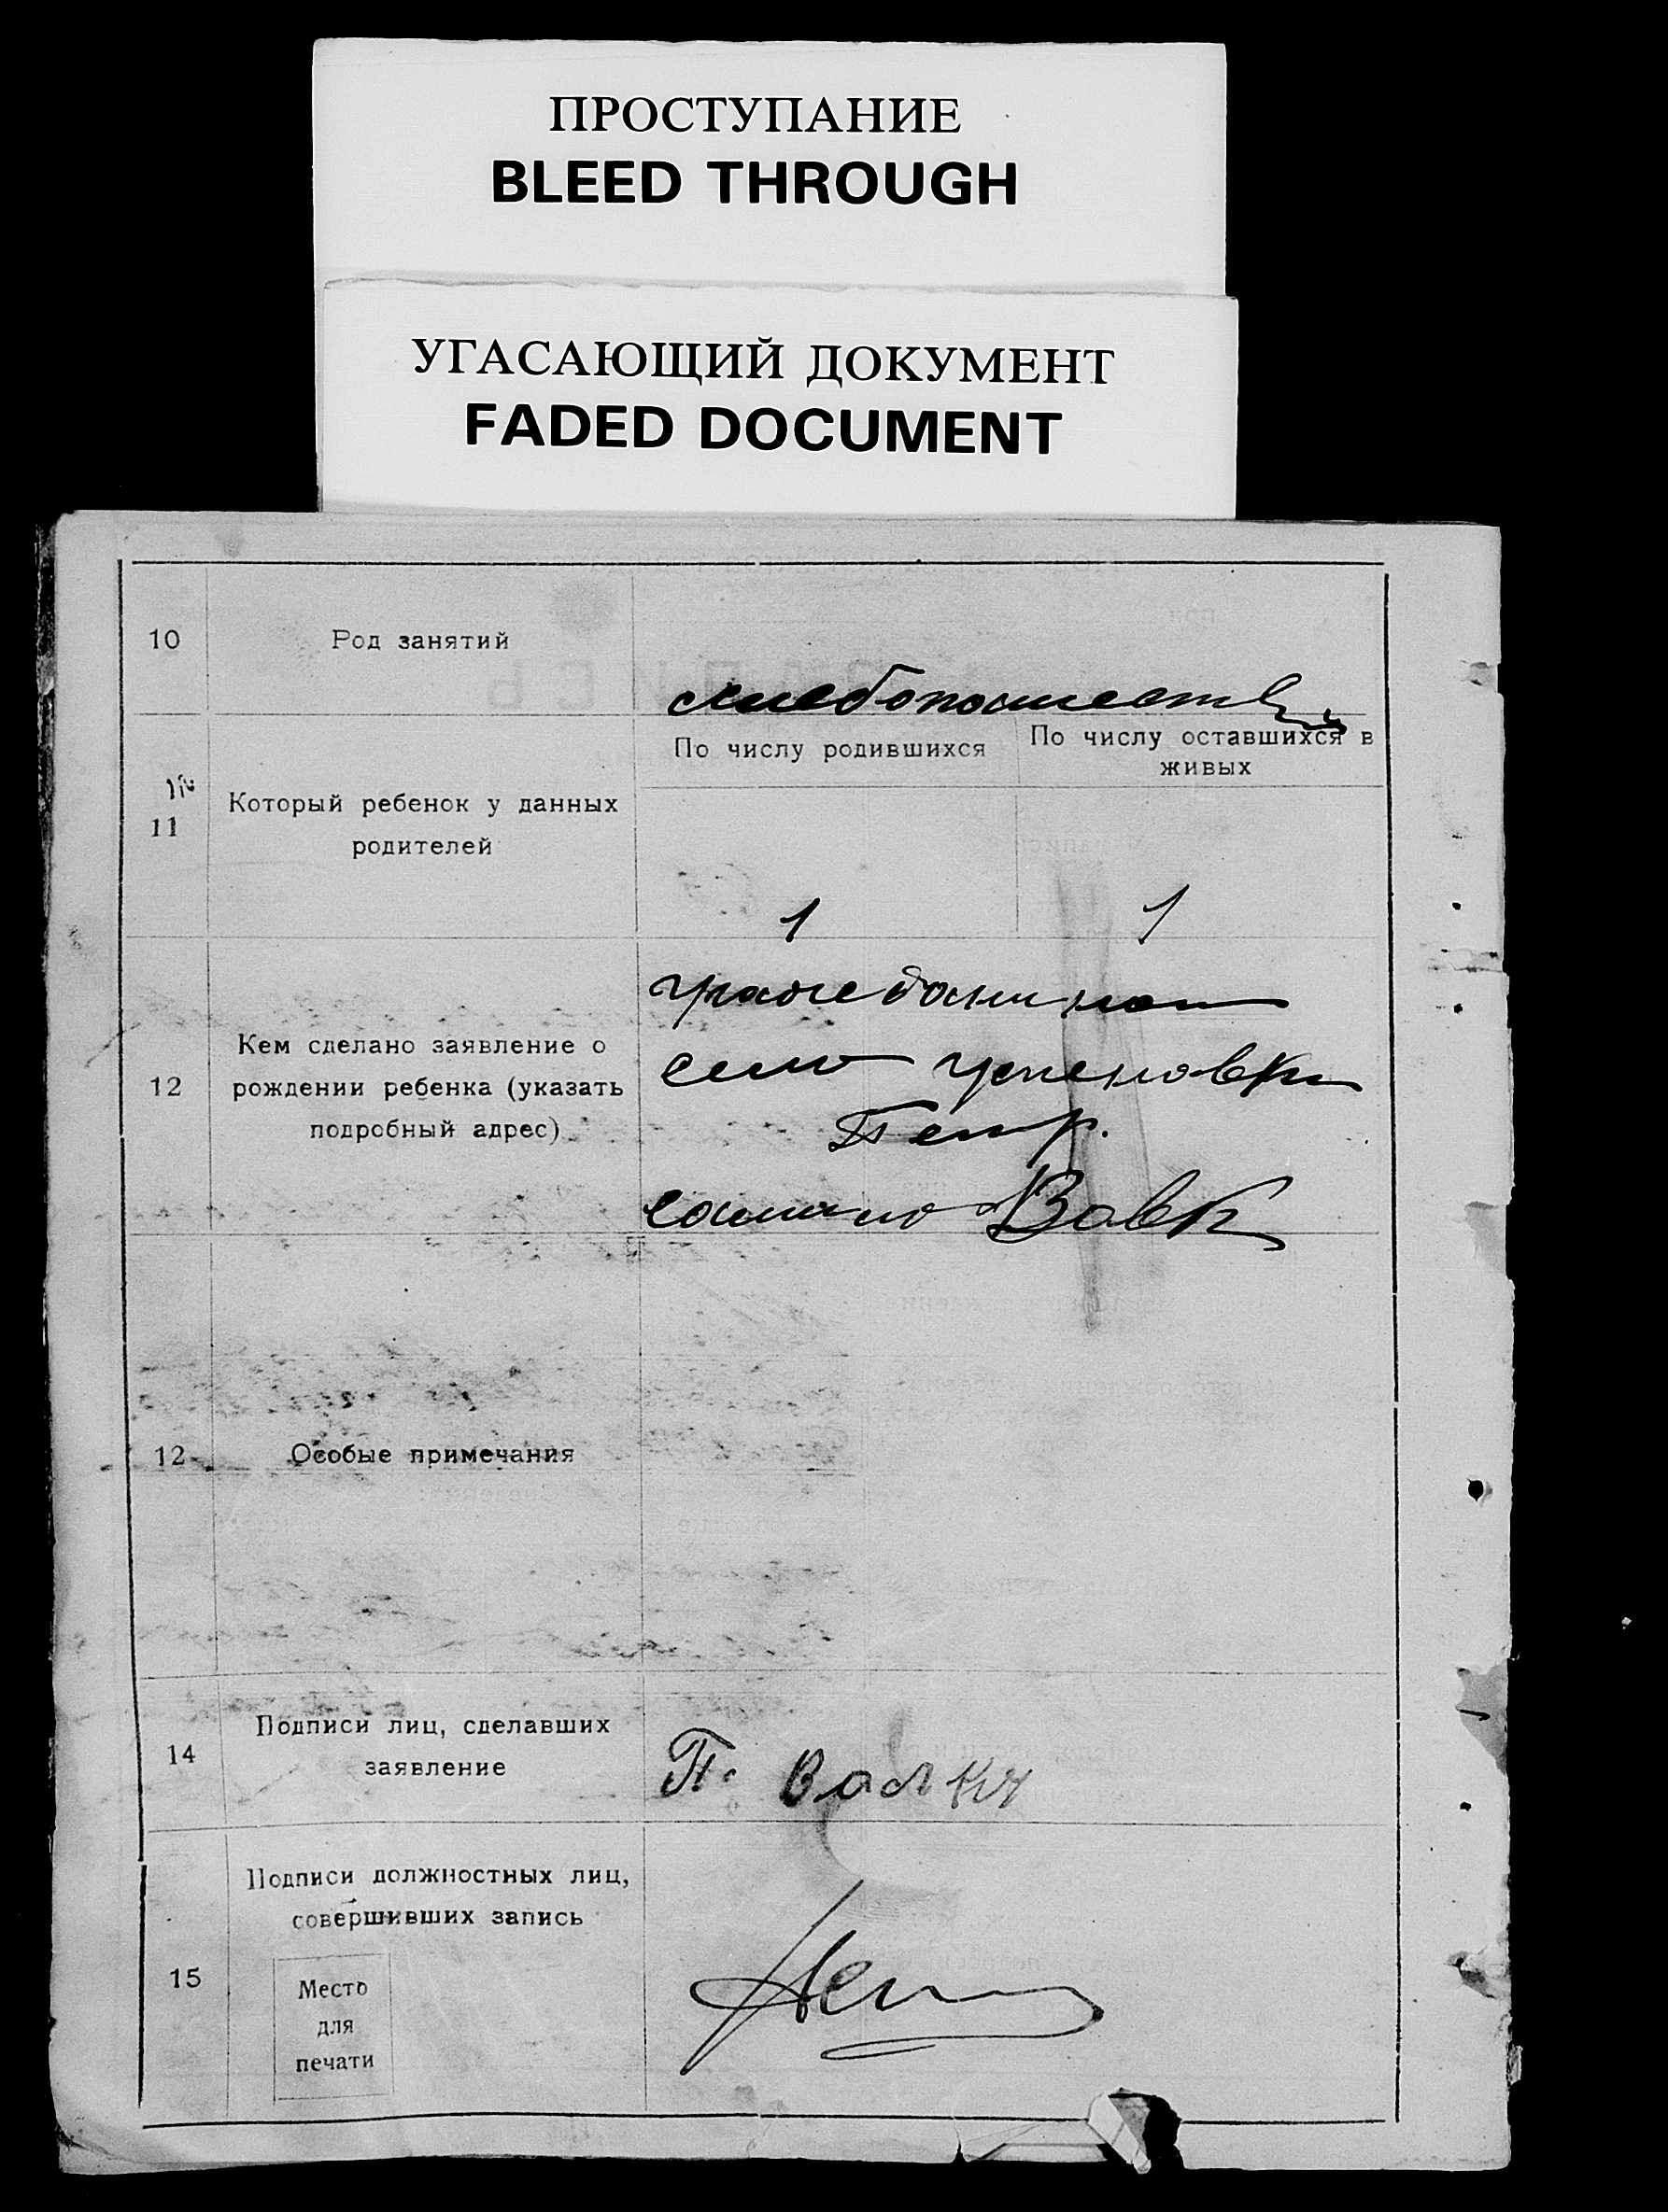 ПРОСТУПАНИЕ
BLEED THROUGH
УГАСАЮЩИЙ ДОКУМЕНТ
FADED DOCUMENT
10
Род занятий
хлебопашество
11
Который ребенок у данных
родителей
По числу родившихся
По числу оставшихся в
живых
1
1
12
Кем сделано заявление о
рождении ребенка (указать
подробный адрес)
гражданином
села Успеновки
Петр.
Вовк
12
Особые примечания
14
Подписи лиц, сделавших
заявление
П.
15
Подписи должностных лиц,
совершивших запись
Место
для
печати